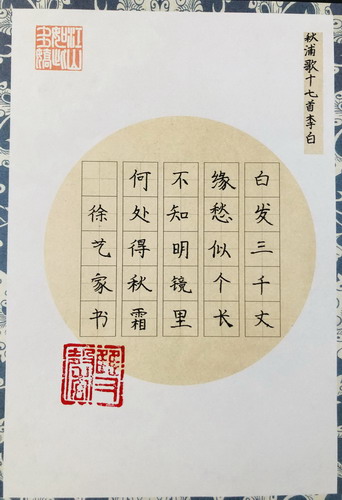 秋浦歌十七首李白
白发三千丈
缘愁似个长
不知明镜里
何处得秋霜
徐艺家书
江山如此多娇